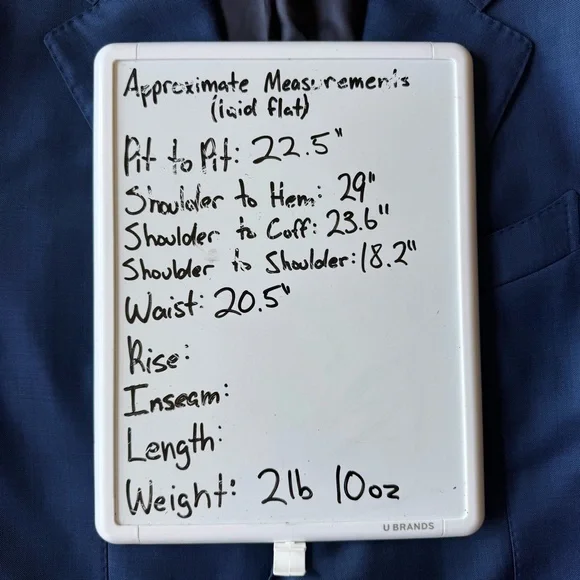 Approximate Measurements
(laid flat)
Pit to Pit: 22.5"
Shoulder to Hem: 29"
Shoulder to Cuff: 23.6"
Shoulder to Shoulder: 18.2"
Waist: 20.5"
Rise:
Inseam:
Length:
Weight: 2lb 10oz
U BRANDS